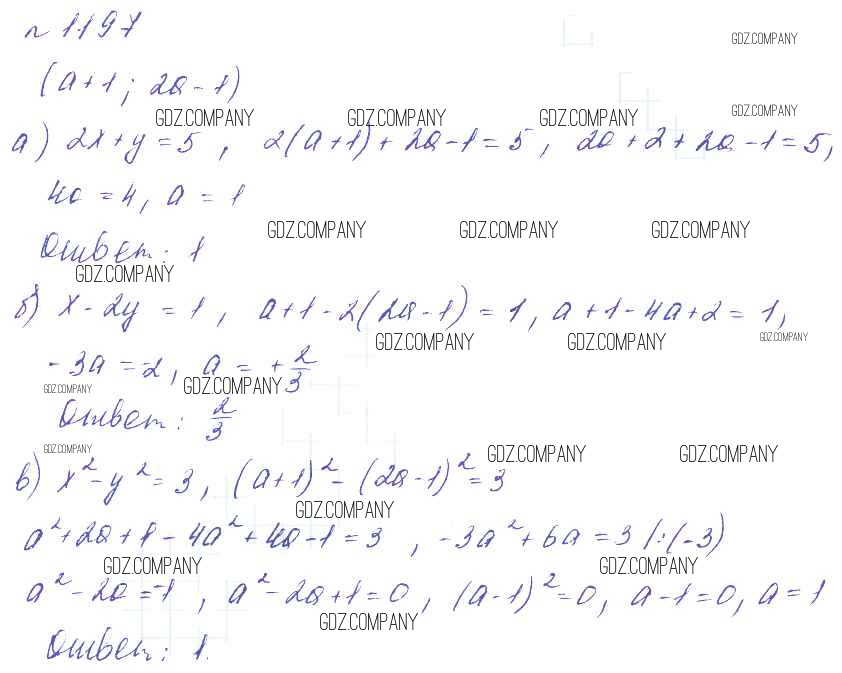 № 1197
GDZ.COMPANY
(a+1; 2a-1)
GDZ.COMPANY GDZ.COMPANY GDZ.COMPANY GDZ.COMPANY
а) 2x+y=5, 2(a+1)+2a-1=5, 2a+2+2a-1=5,
4a=4, a=1
GDZ.COMPANY GDZ.COMPANY GDZ.COMPANY
Ответ: 1
GDZ.COMPANY
б) x-2y=1, a+1-2(2a-1)=1, a+1-4a+2=1,
GDZ.COMPANY GDZ.COMPANY GDZ.COMPANY
-3a=-2, a=+2/3
GDZ.COMPANY GDZ.COMPANY
Ответ: 2/3
GDZ.COMPANY GDZ.COMPANY GDZ.COMPANY
в) x²-y²=3, (a+1)²-(2a-1)²=3
GDZ.COMPANY
a²+2a+1-4a²+4a-1=3, -3a²+6a=3 |:(-3)
GDZ.COMPANY GDZ.COMPANY
a²-2a=-1, a²-2a+1=0, (a-1)²=0, a-1=0, a=1
GDZ.COMPANY
Ответ: 1.